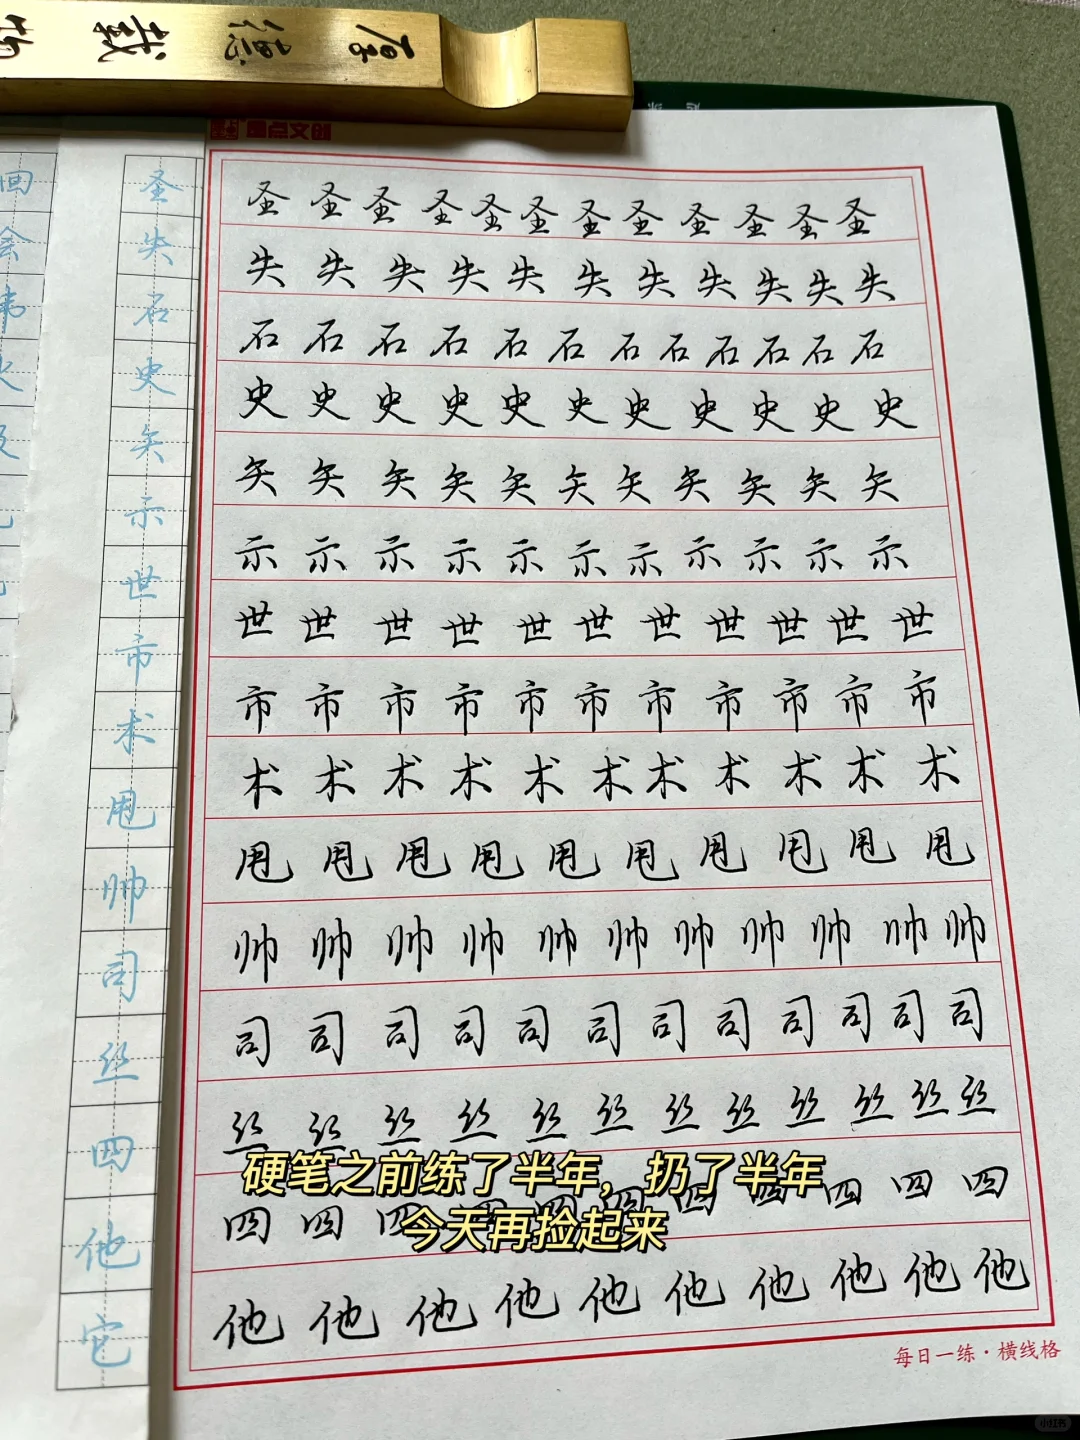 厚德载物
圣圣圣圣圣圣圣圣圣圣圣圣
失失失失失失失失失失失
石石石石石石石石石石石石
史史史史史史史史史史史
矢矢矢矢矢矢矢矢矢矢矢
示示示示示示示示示示示
世世世世世世世世世世世
市市市市市市市市市市市
术术术术术术术术术术术
甩甩甩甩甩甩甩甩甩甩
帅帅帅帅帅帅帅帅帅帅帅
司司司司司司司司司司司
丝丝丝丝丝丝丝丝丝丝丝
四四四四四四四四四四
他他他他他他他他他
硬笔之前练了半年，扔了半年
今天再捡起来
每日一练·横线格
圣
失
石
史
矢
示
世
市
术
甩
帅
司
丝
四
他
它
回
会